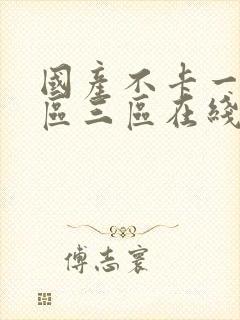 國産不卡一
區三區在綫
傅志寰